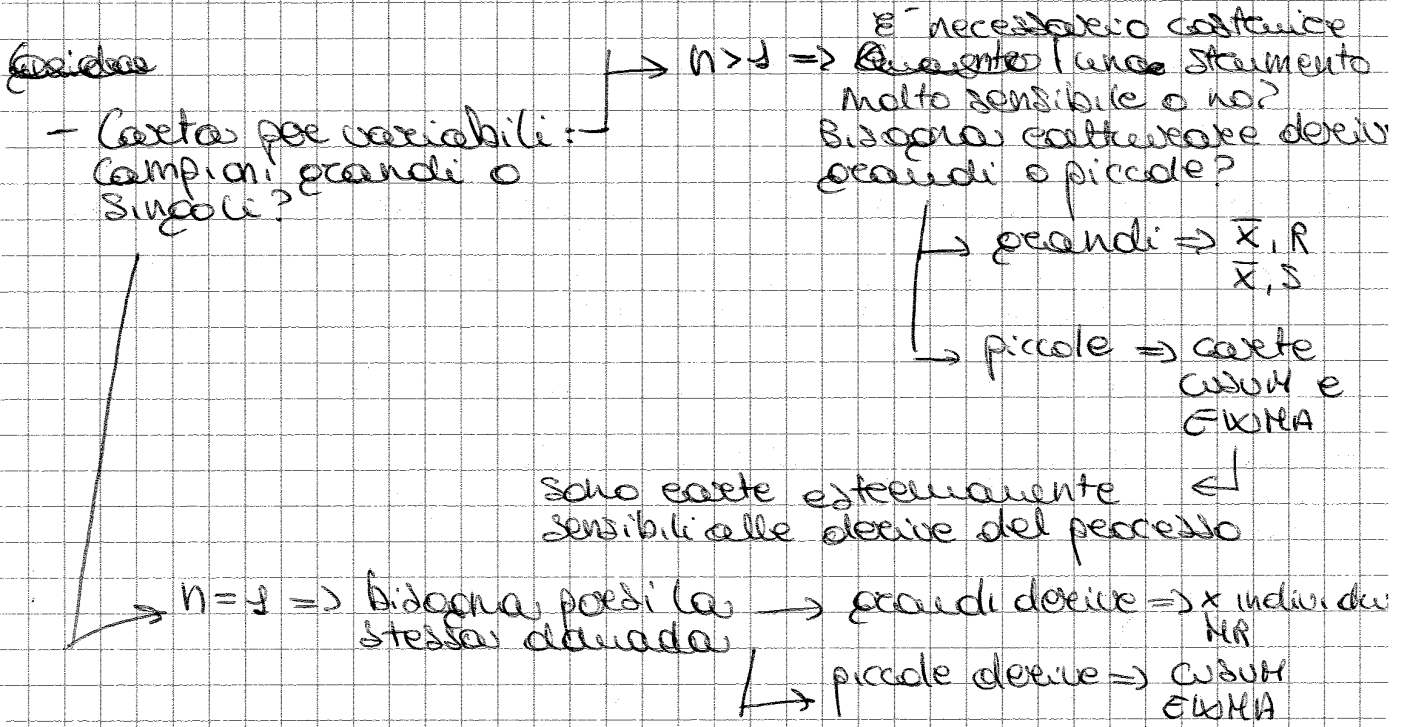 È necessario costruire
n>1 => uno strumento
molto sensibile o no?
- Carta per variabili:
Bisogna catturare deriv
campioni grandi o
grandi o piccole?
singoli?
grandi => x̅, R
x̅, S
piccole => carte
CUSUM e
EWMA
sono carte estremamente
sensibili alle derive del processo
n=1 => bisogna porsi la
stessa domada
grandi derive => x individu
MR
piccole derive => CUSUM
EWMA